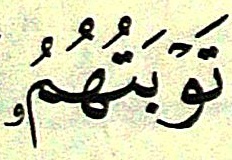 تَوۡبَتُهُمُۥ